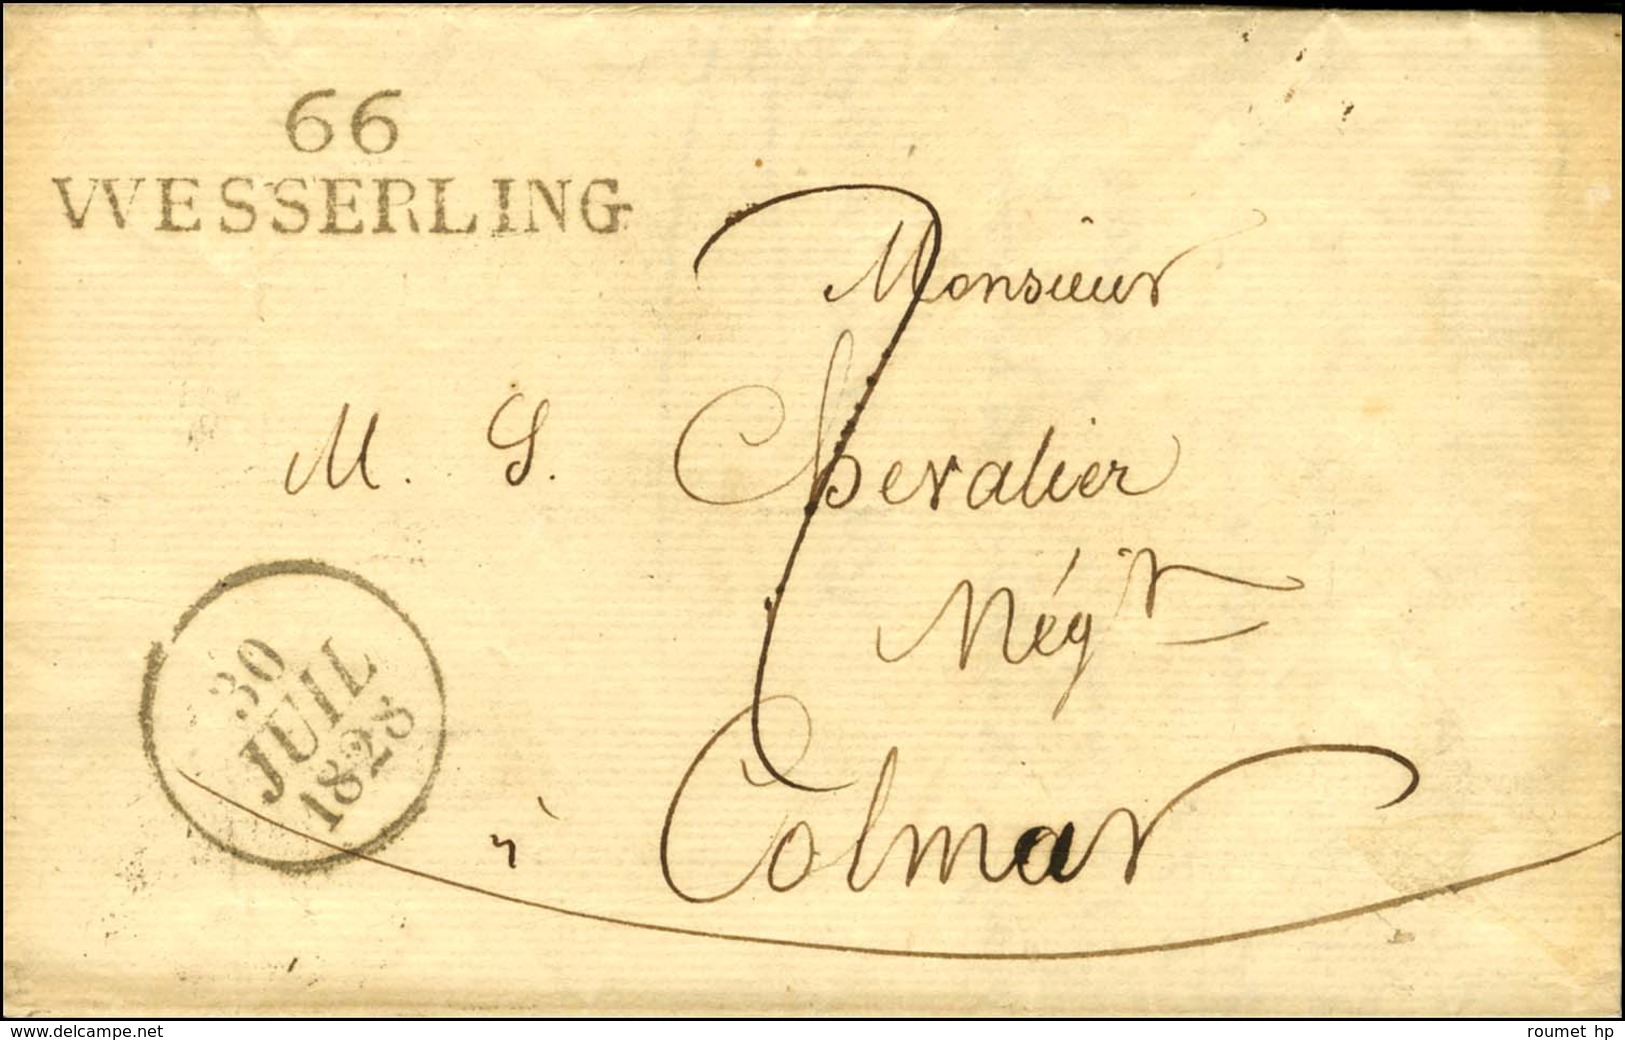 66
WESSERLING
Monsieur
M. S. Chevalier
Négr
à Colmar
30
JUIL
1828
www.delcampe.net
roumet hp